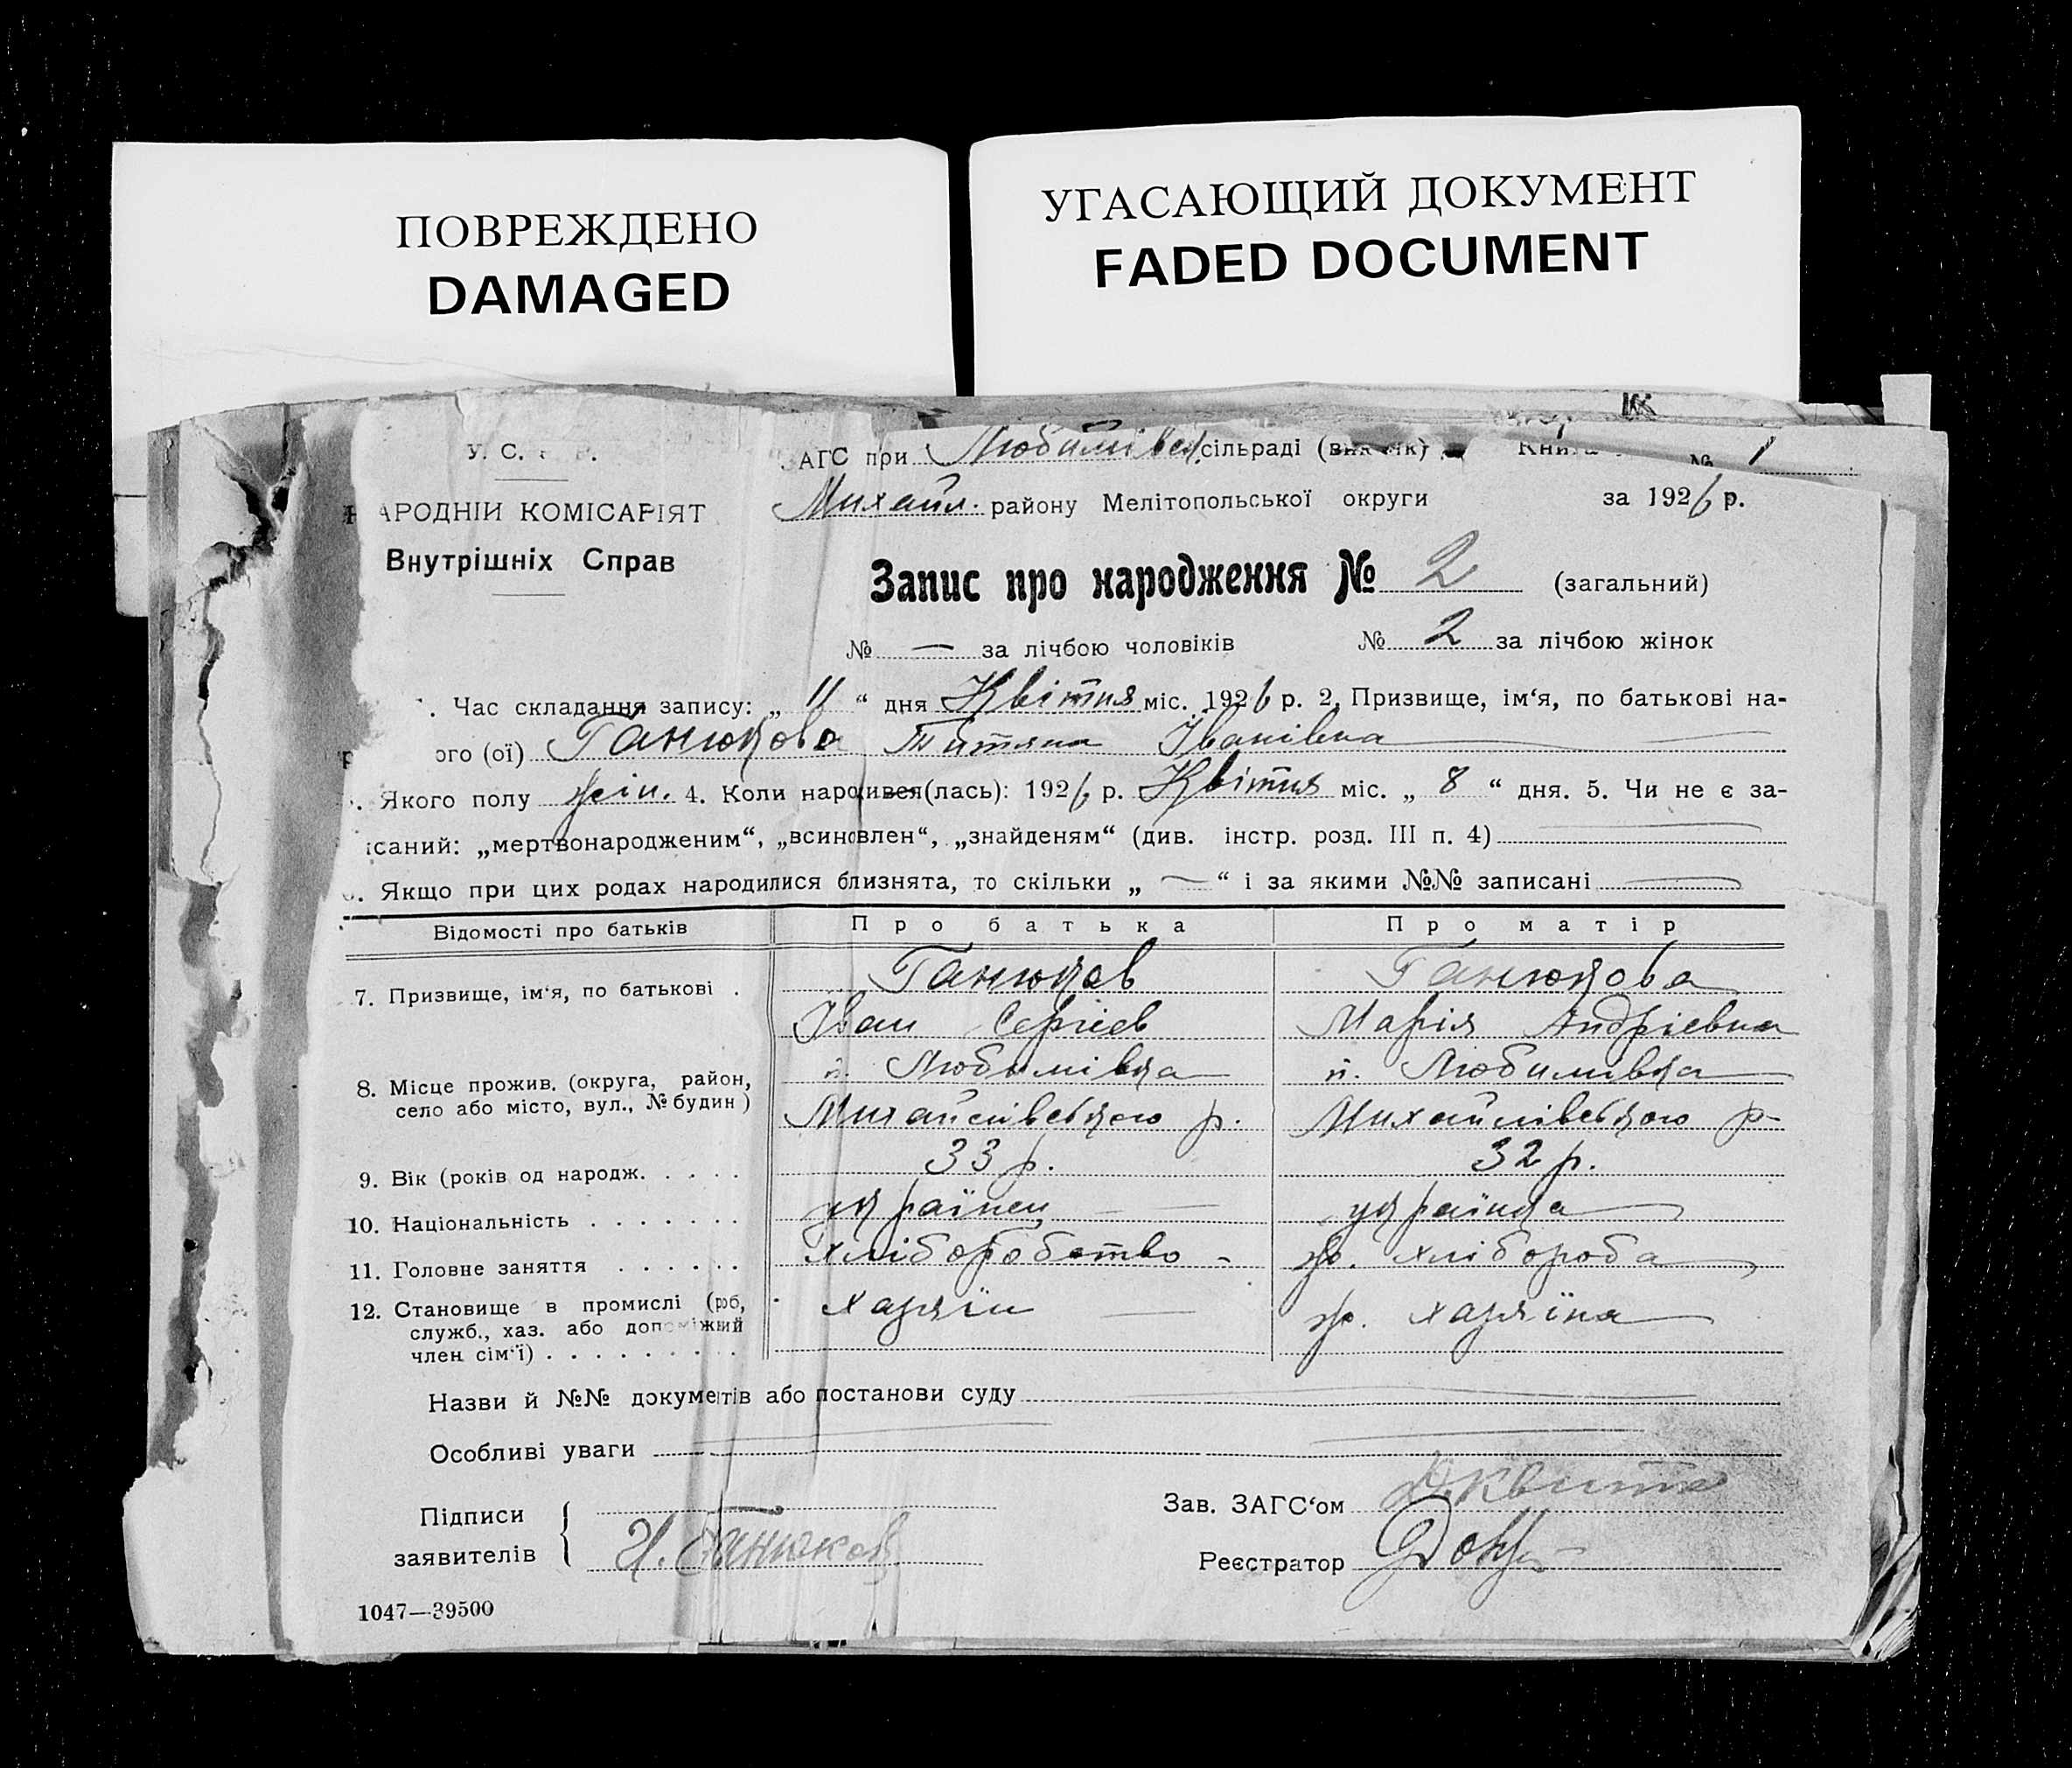 ПОВРЕЖДЕНО
DAMAGED
УГАСАЮЩИЙ ДОКУМЕНТ
FADED DOCUMENT
У. С.
АГС при Любимівск. сільраді № 1
Михайл. району Мелітопольської округи за 1926 р.
НАРОДНІЙ КОМІСАРІЯТ
Внутрішніх Справ
Запис про народження № 2 (загальний)
№ — за лічбою чоловіків № 2 за лічбою жінок
Час складання запису: „ 11 “ дня Квітня міс. 1926 р. 2. Призвище, ім‘я, по батькові на-
ого (ої) Ганюкова Титяна Іванівна
Якого полу жін. 4. Коли народився(лась): 1926 р. Квітня міс. „ 8 “ дня. 5. Чи не є за-
исаний: „мертвонародженим“, „всиновлен“, „знайденям“ (див. інстр. розд. III п. 4)
Якщо при цих родах народилися близнята, то скільки „ — “ і за якими №№ записані —
Відомості про батьків Про батька Про матір
7. Призвище, ім‘я, по батькові . Ганюков Ганюкова
Іван Сергієв Марія Андрієвна
8. Місце прожив. (округа, район, п. Любимівка п. Любимівка
село або місто, вул., № будин) Михайлівського р. Михайлівського р.
9. Вік (років од народж. . . . . 33 р. 32 р.
10. Національність . . . . . . . українец українка
11. Головне заняття . . . . . . хліборобство - ж. хлібороба
12. Становище в промислі (роб, хазяїн ж. хазяїна
служб., хаз. або допоміжний
член сім‘ї) . . . . . . . . .
Назви й №№ документів або постанови суду
Особливі уваги
Підписи Зав. ЗАГС‘ом Квитко
заявителів И. Ганюков Реєстратор
1047—39500